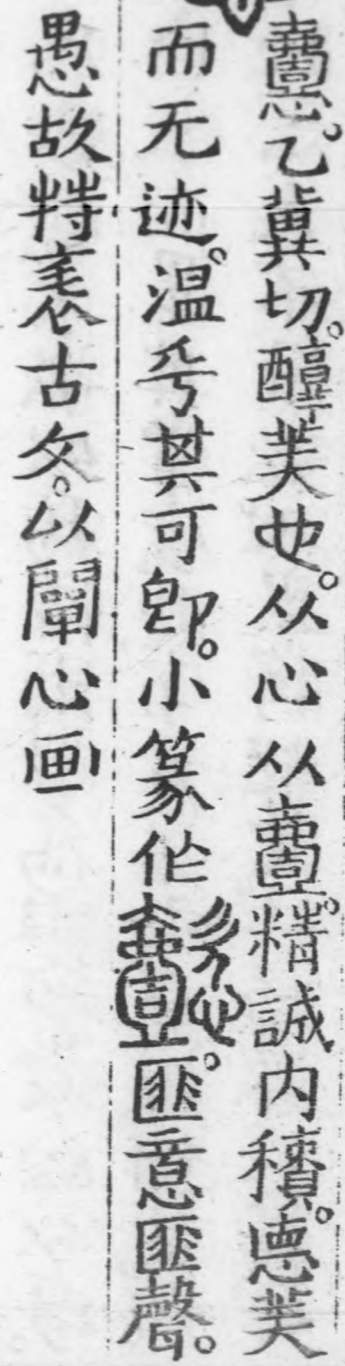 乙冀切。醇美也。从心从壹。精誠内積。悳美
而无迹。温乎其可卽。小篆作懿。匪意匪聲。
愚故特表古文。以闡心画